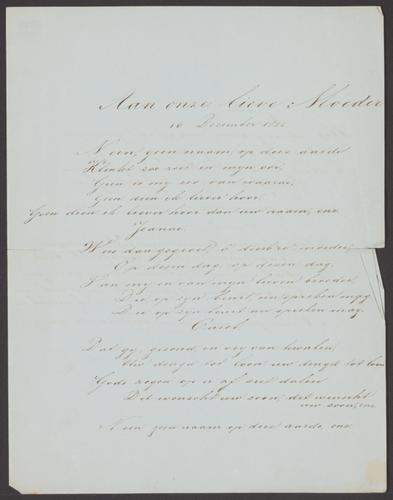 Aan onze lieve Moeder
16 December
Neen, geen naam op deze aarde
Klinkt zoo zoet in mijn oor,
Geen is mij zoo van waarde,
Geen dien ik liever hoor
Geen dien ik liever hoor dan uw naam, enz.
Jeanne.
Wees dan gegroet, o dierbre moeder,
Op dezen dag, op dezen dag.
Van mij en van mijn lieven broeder
Die op zijn beurt, nu spreken mag
Die op zijn beurt nu spreken mag.
Carel
Dat gij, gezond, en vrij van kwalen,
Uw deugd tot loon uw deugd tot loon
Gods zegen op u af ziet dalen
Dit wenscht uw zoon, dit wenscht
uw zoon, enz
Neen geen naam op deze aarde, enz.